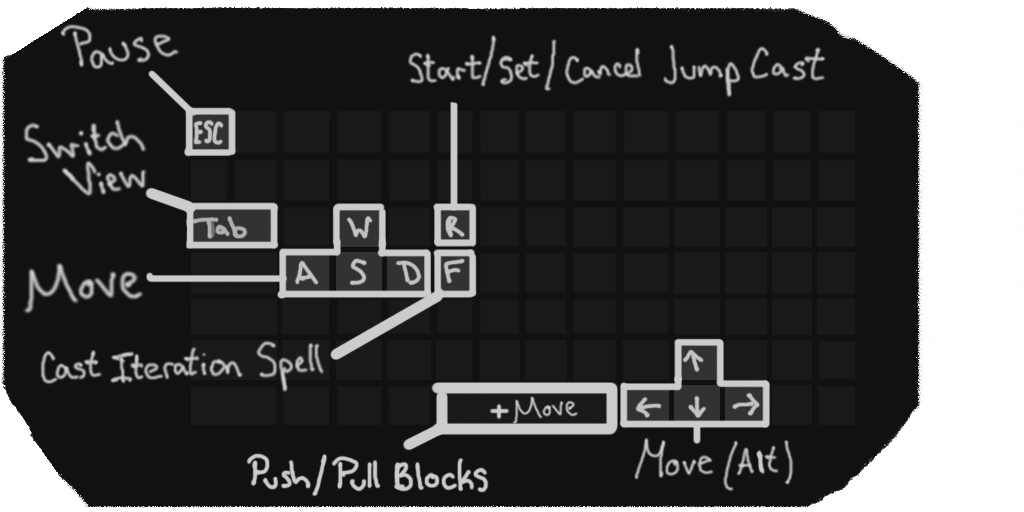 Pause
Start/Set/Cancel Jump Cast
ESC
Switch
View
Tab
W
R
Move
A S D
F
Cast Iteration Spell
↑
+Move
← ↓ →
Push/Pull Blocks
Move (Alt)